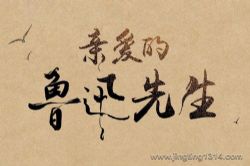 亲爱的
魯迅先生
www.jingting1314.com